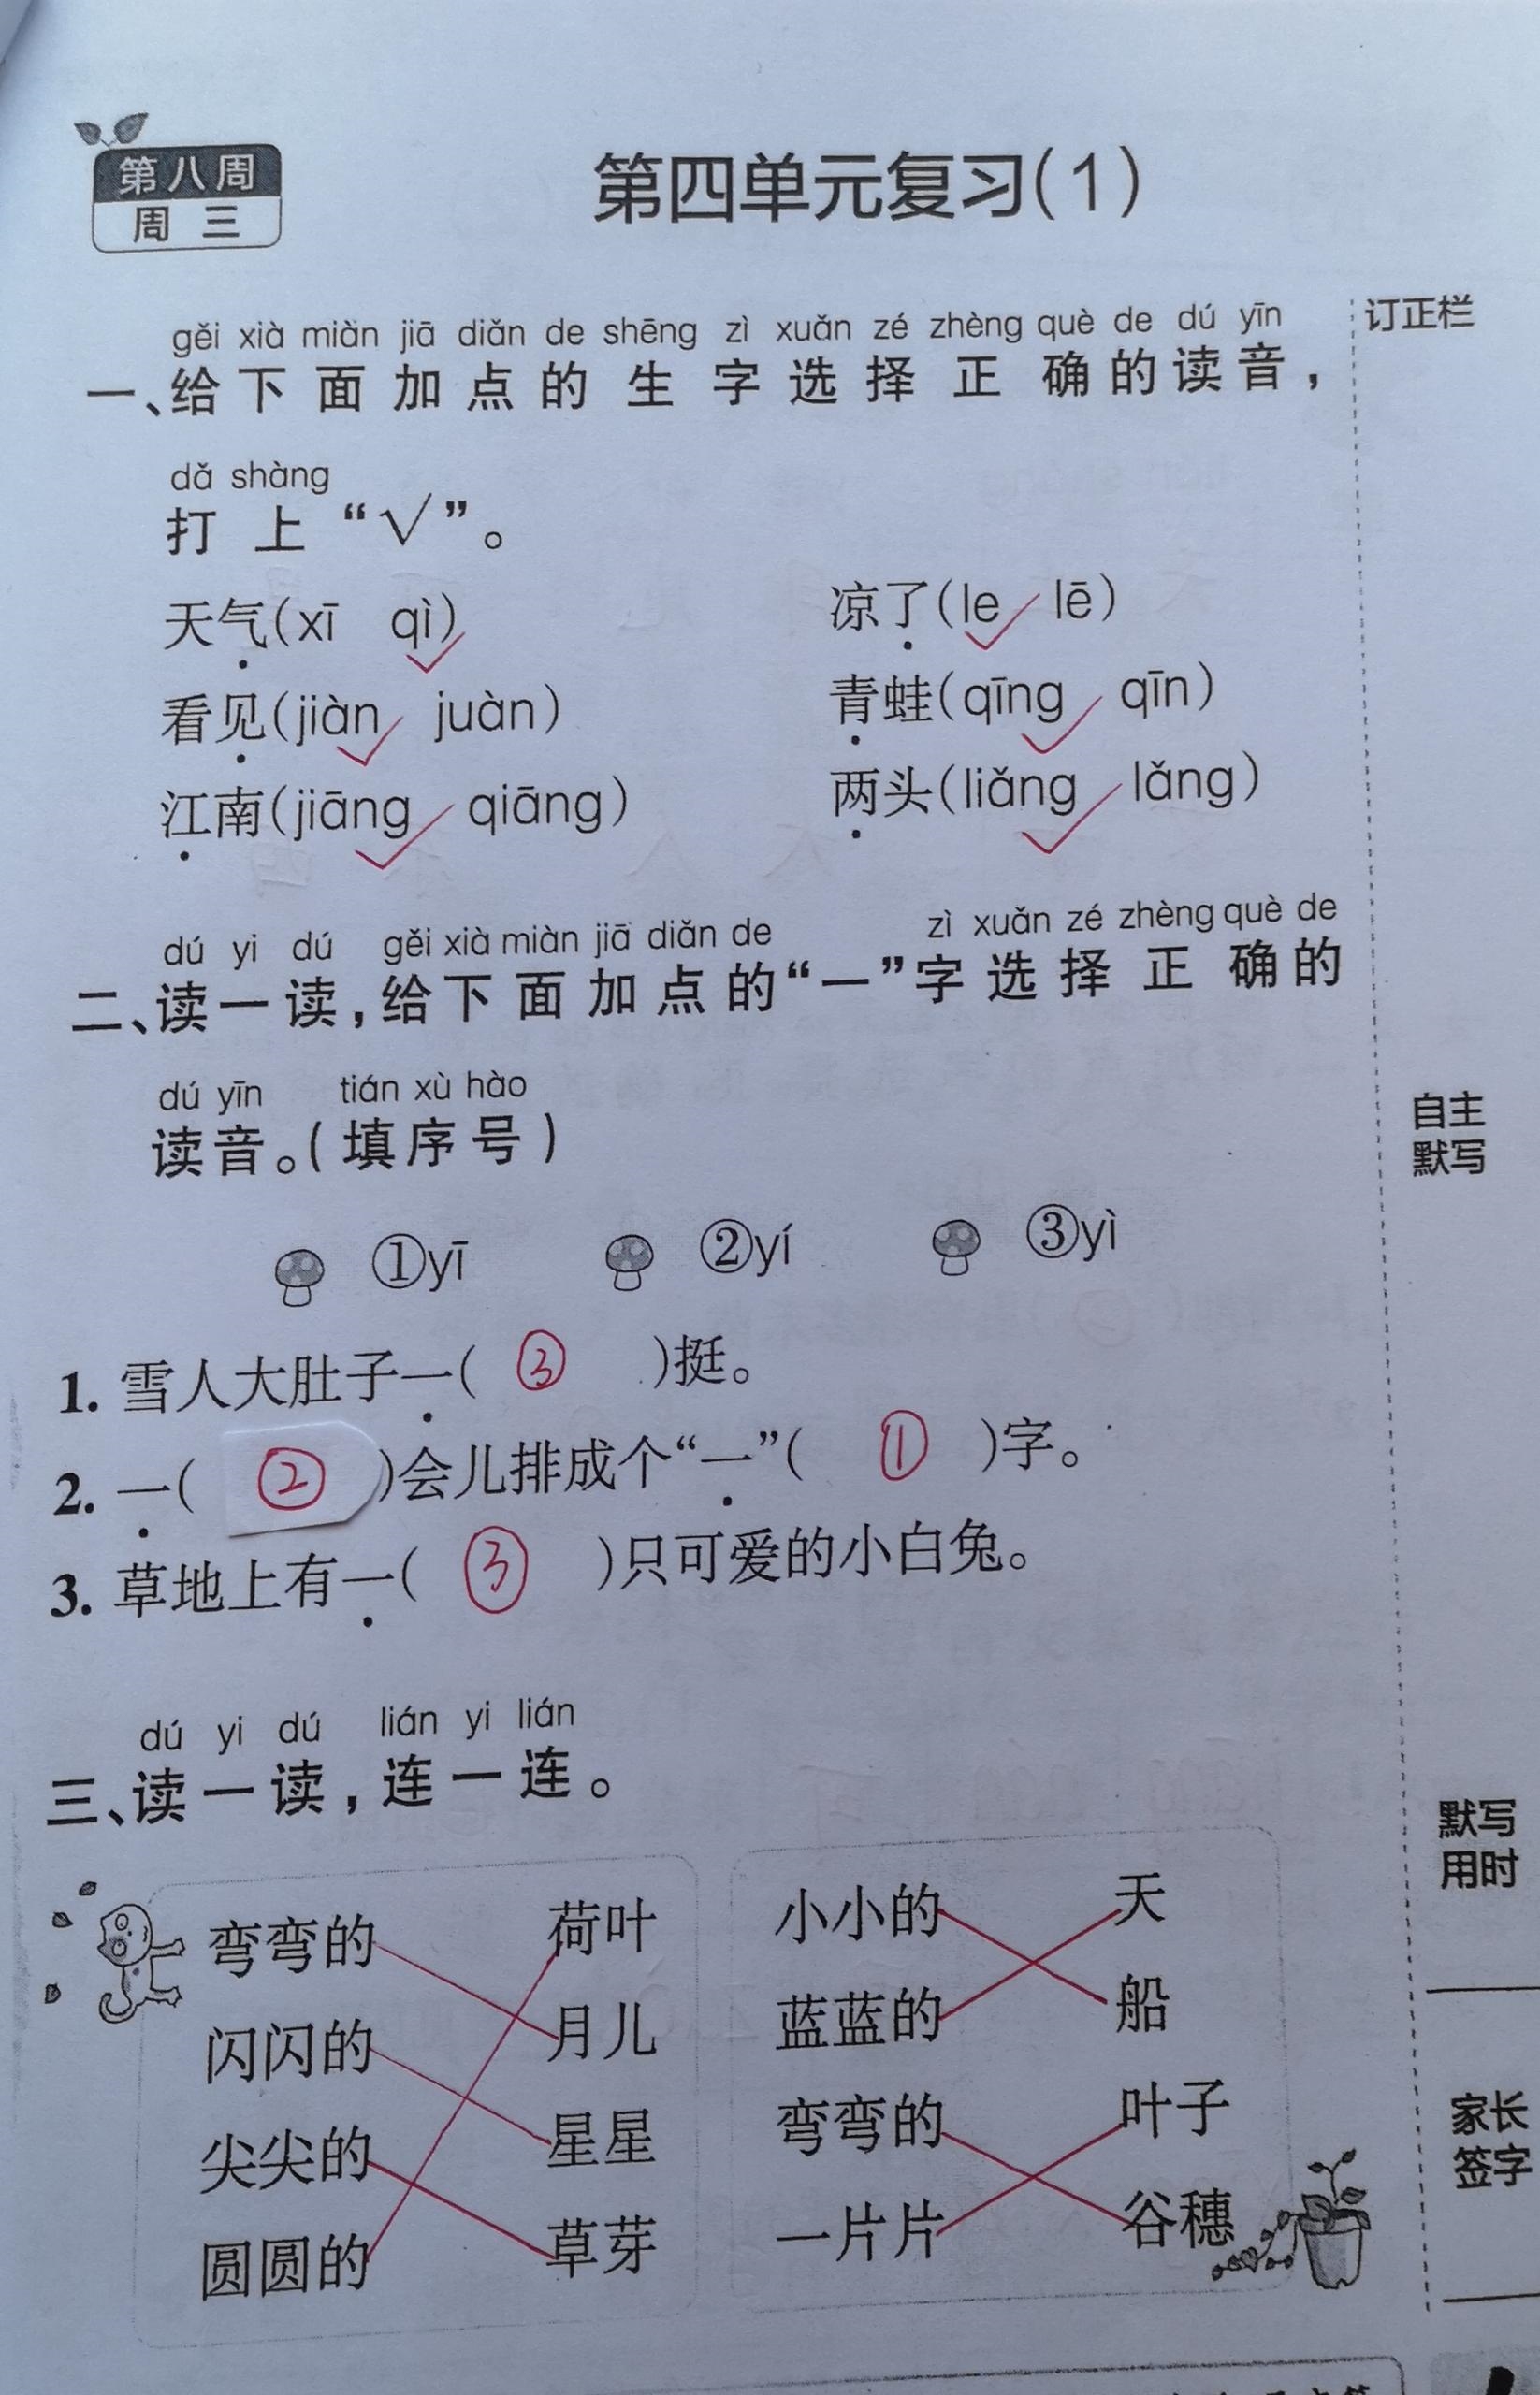 第八周
周三
第四单元复习(1)
订正栏
gěi xià miàn jiā diǎn de shēng zì xuǎn zé zhèng què de dú yīn
一、给下面加点的生字选择正确的读音，
dǎ shàng
打上“√”。
天气(xī qì) 凉了(le lē)
看见(jiàn juàn) 青蛙(qīng qīn)
江南(jiāng qiāng) 两头(liǎng lǎng)
dú yi dú gěi xià miàn jiā diǎn de zì xuǎn zé zhèng què de
二、读一读，给下面加点的“一”字选择正确的
dú yīn tián xù hào
读音。(填序号)
自主
默写
①yī ②yí ③yì
1. 雪人大肚子一( ③ )挺。
2. 一( ② )会儿排成个“一”( ① )字。
3. 草地上有一( ③ )只可爱的小白兔。
dú yi dú lián yi lián
三、读一读，连一连。
默写
用时
弯弯的 荷叶 小小的 天
闪闪的 月儿 蓝蓝的 船
尖尖的 星星 弯弯的 叶子
圆圆的 草芽 一片片 谷穗
家长
签字